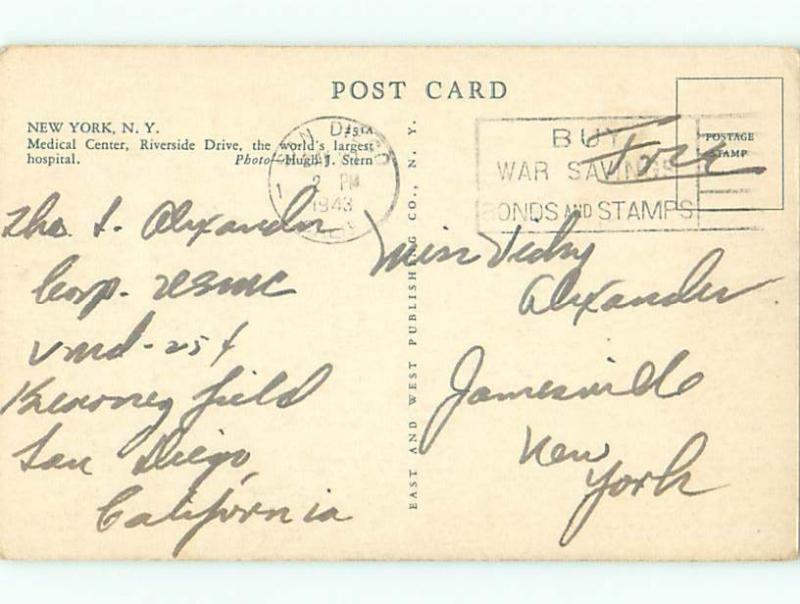 POST CARD
NEW YORK, N. Y.
Medical Center, Riverside Drive, the world's largest
hospital. Photo—Hugh J. Stern
251A
SAN DIEGO
1
2 PM
1943
BUY
WAR SAVINGS
BONDS AND STAMPS
POSTAGE
STAMP
Free
EAST AND WEST PUBLISHING CO., N. Y.
Tho. S. Alexander
Corp. USMC
VMD-254
Kearney Field
San Diego,
California
Miss Vicky
Alexander
Jamesville
New
York